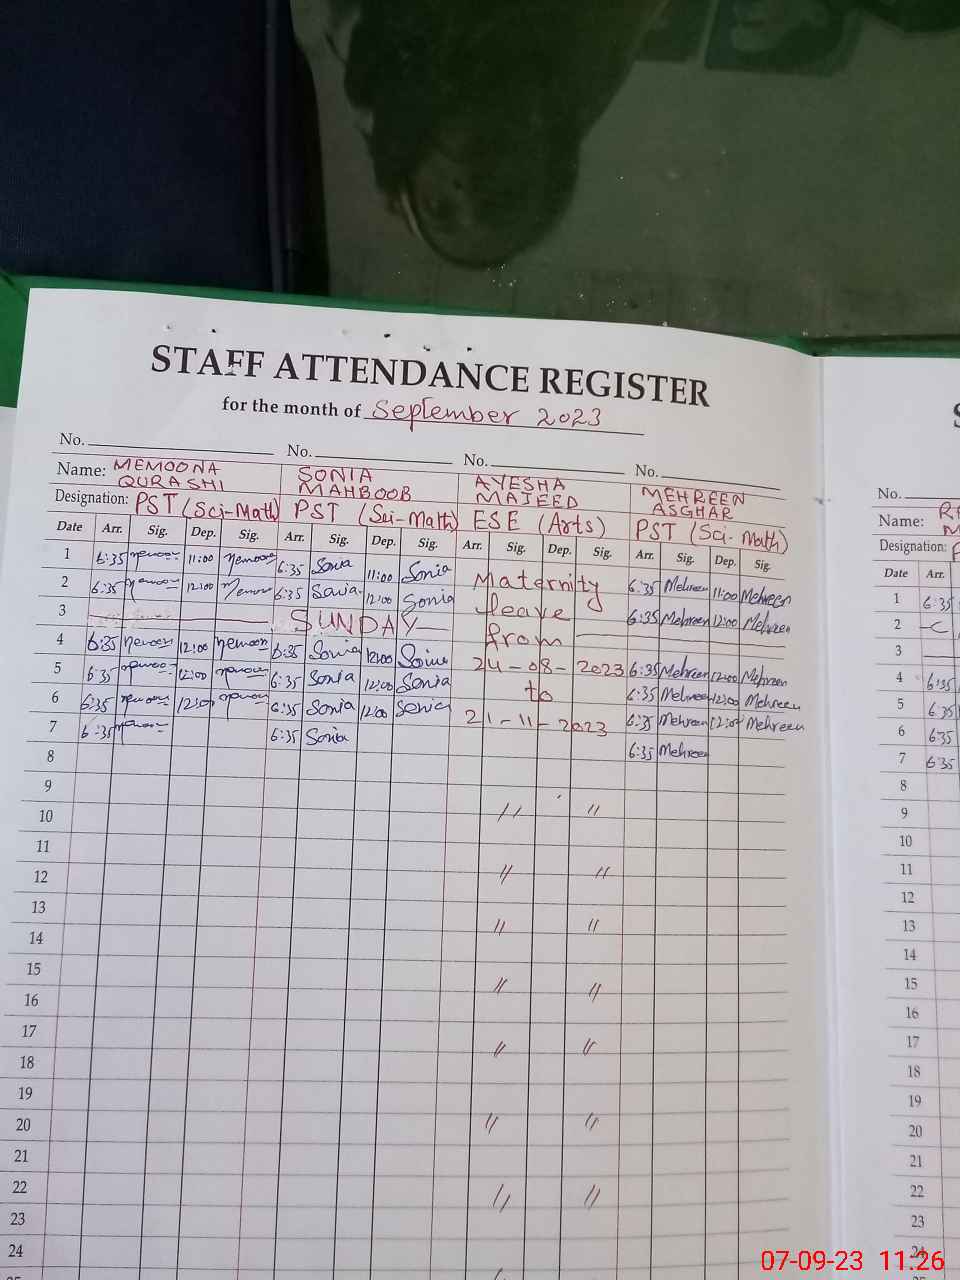 STAFF ATTENDANCE REGISTER
for the month of September 2023
No. No. No. No.
Name: MEMOONA QURASHI SONIA MAHBOOB AYESHA MAJEED MEHREEN ASGHAR
Designation: PST (Sci-Math) PST (Sci-Math) ESE (Arts) PST (Sci-Math)
Date Arr. Sig. Dep. Sig. Arr. Sig. Dep. Sig. Arr. Sig. Dep. Sig. Arr. Sig. Dep. Sig.
1 6:35 11:00 6:35 Sonia 11:00 Sonia Maternity 6:35 Mehreen 11:00 Mehreen
2 6:35 12:00 6:35 Sonia 12:00 Sonia leave 6:35 Mehreen 12:00 Mehreen
3 SUNDAY from
4 6:35 12:00 6:35 Sonia 12:00 Sonia 24-08-2023 6:35 Mehreen 12:00 Mehreen
5 6:35 12:00 6:35 Sonia 12:00 Sonia to 6:35 Mehreen 12:00 Mehreen
6 6:35 12:00 6:35 Sonia 12:00 Sonia 21-11-2023 6:35 Mehreen 12:00 Mehreen
7 6:35 6:35 Sonia 6:35 Mehreen
8
9
10 " "
11
12 " "
13
14 " "
15
16 " "
17
18 " "
19
20 " "
21
22 " "
23
24
No.
Name:
Designation:
Date Arr.
1 6:35
2
3
4 6:35
5 6:35
6 6:35
7 6:35
8
9
10
11
12
13
14
15
16
17
18
19
20
21
22
23
24
07-09-23 11:26